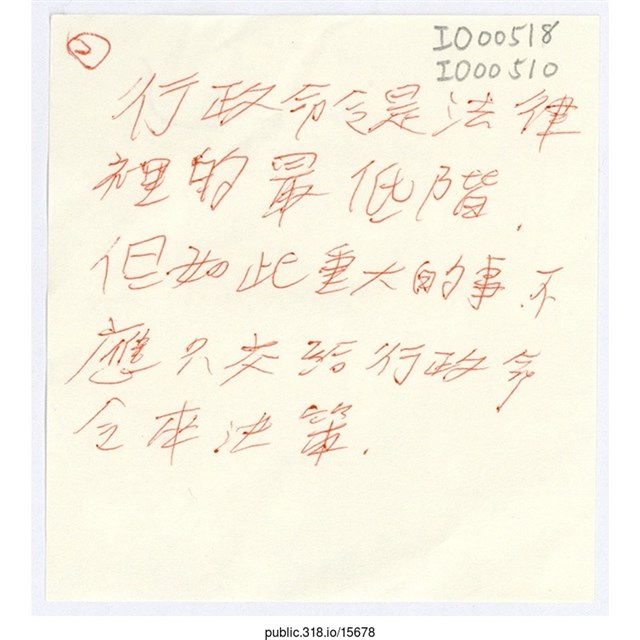 ②
IO00518
IO00510
行政命令是法律
裡的最低階.
但如此重大的事.不
應只交給行政命
令來決策.
public.318.io/15678